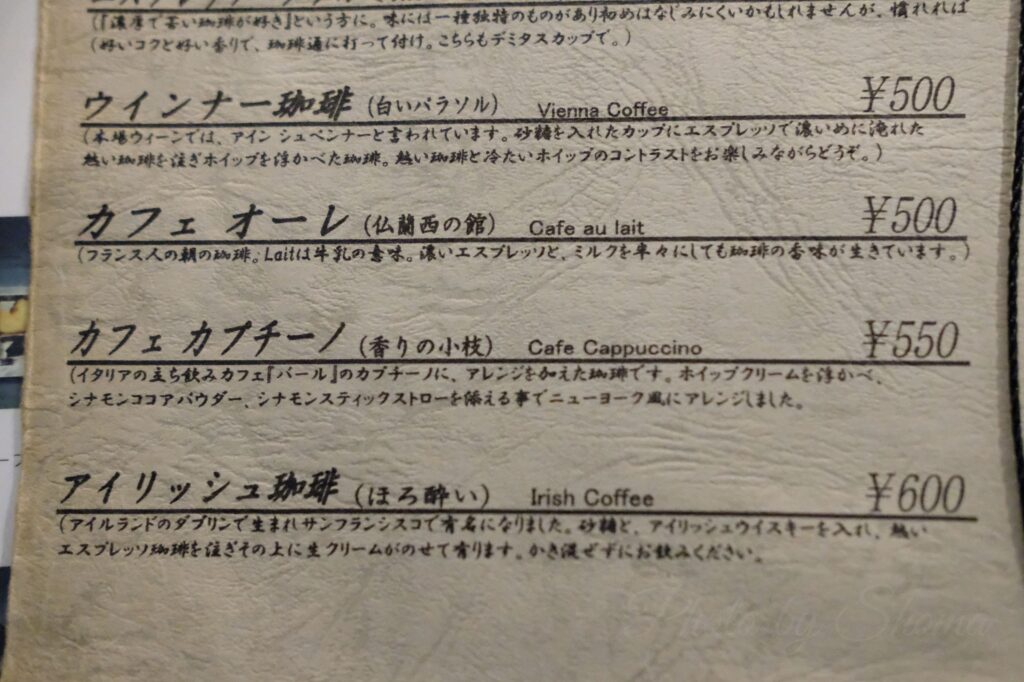 (『濃厚で苦い珈琲が好き』という方に。味には一種独特のものがあり初めはなじみにくいかもしれませんが、慣れれば
好いコクと好い香りで、珈琲通に打って付け。こちらもデミタスカップで。)
ウインナー珈琲 (白いパラソル) Vienna Coffee ¥500
(本場ウィーンでは、アイン シュペンナーと言われています。砂糖を入れたカップにエスプレッソで濃いめに淹れた
熱い珈琲を注ぎホイップを浮かべた珈琲。熱い珈琲と冷たいホイップのコントラストをお楽しみながらどうぞ。)
カフェ オーレ (仏蘭西の館) Cafe au lait ¥500
(フランス人の朝の珈琲。Laitは牛乳の意味。濃いエスプレッソと、ミルクを半々にしても珈琲の香味が生きています。)
カフェ カプチーノ (香りの小枝) Cafe Cappuccino ¥550
(イタリアの立ち飲みカフェ『バール』のカプチーノに、アレンジを加えた珈琲です。ホイップクリームを浮かべ、
シナモンココアパウダー、シナモンスティックストローを添える事でニューヨーク風にアレンジしました。
アイリッシュ珈琲 (ほろ酔い) Irish Coffee ¥600
(アイルランドのダブリンで生まれサンフランシスコで有名になりました。砂糖と、アイリッシュウイスキーを入れ、熱い
エスプレッソ珈琲を注ぎその上に生クリームがのせて有ります。かき混ぜずにお飲みください。
Photo by Shoma